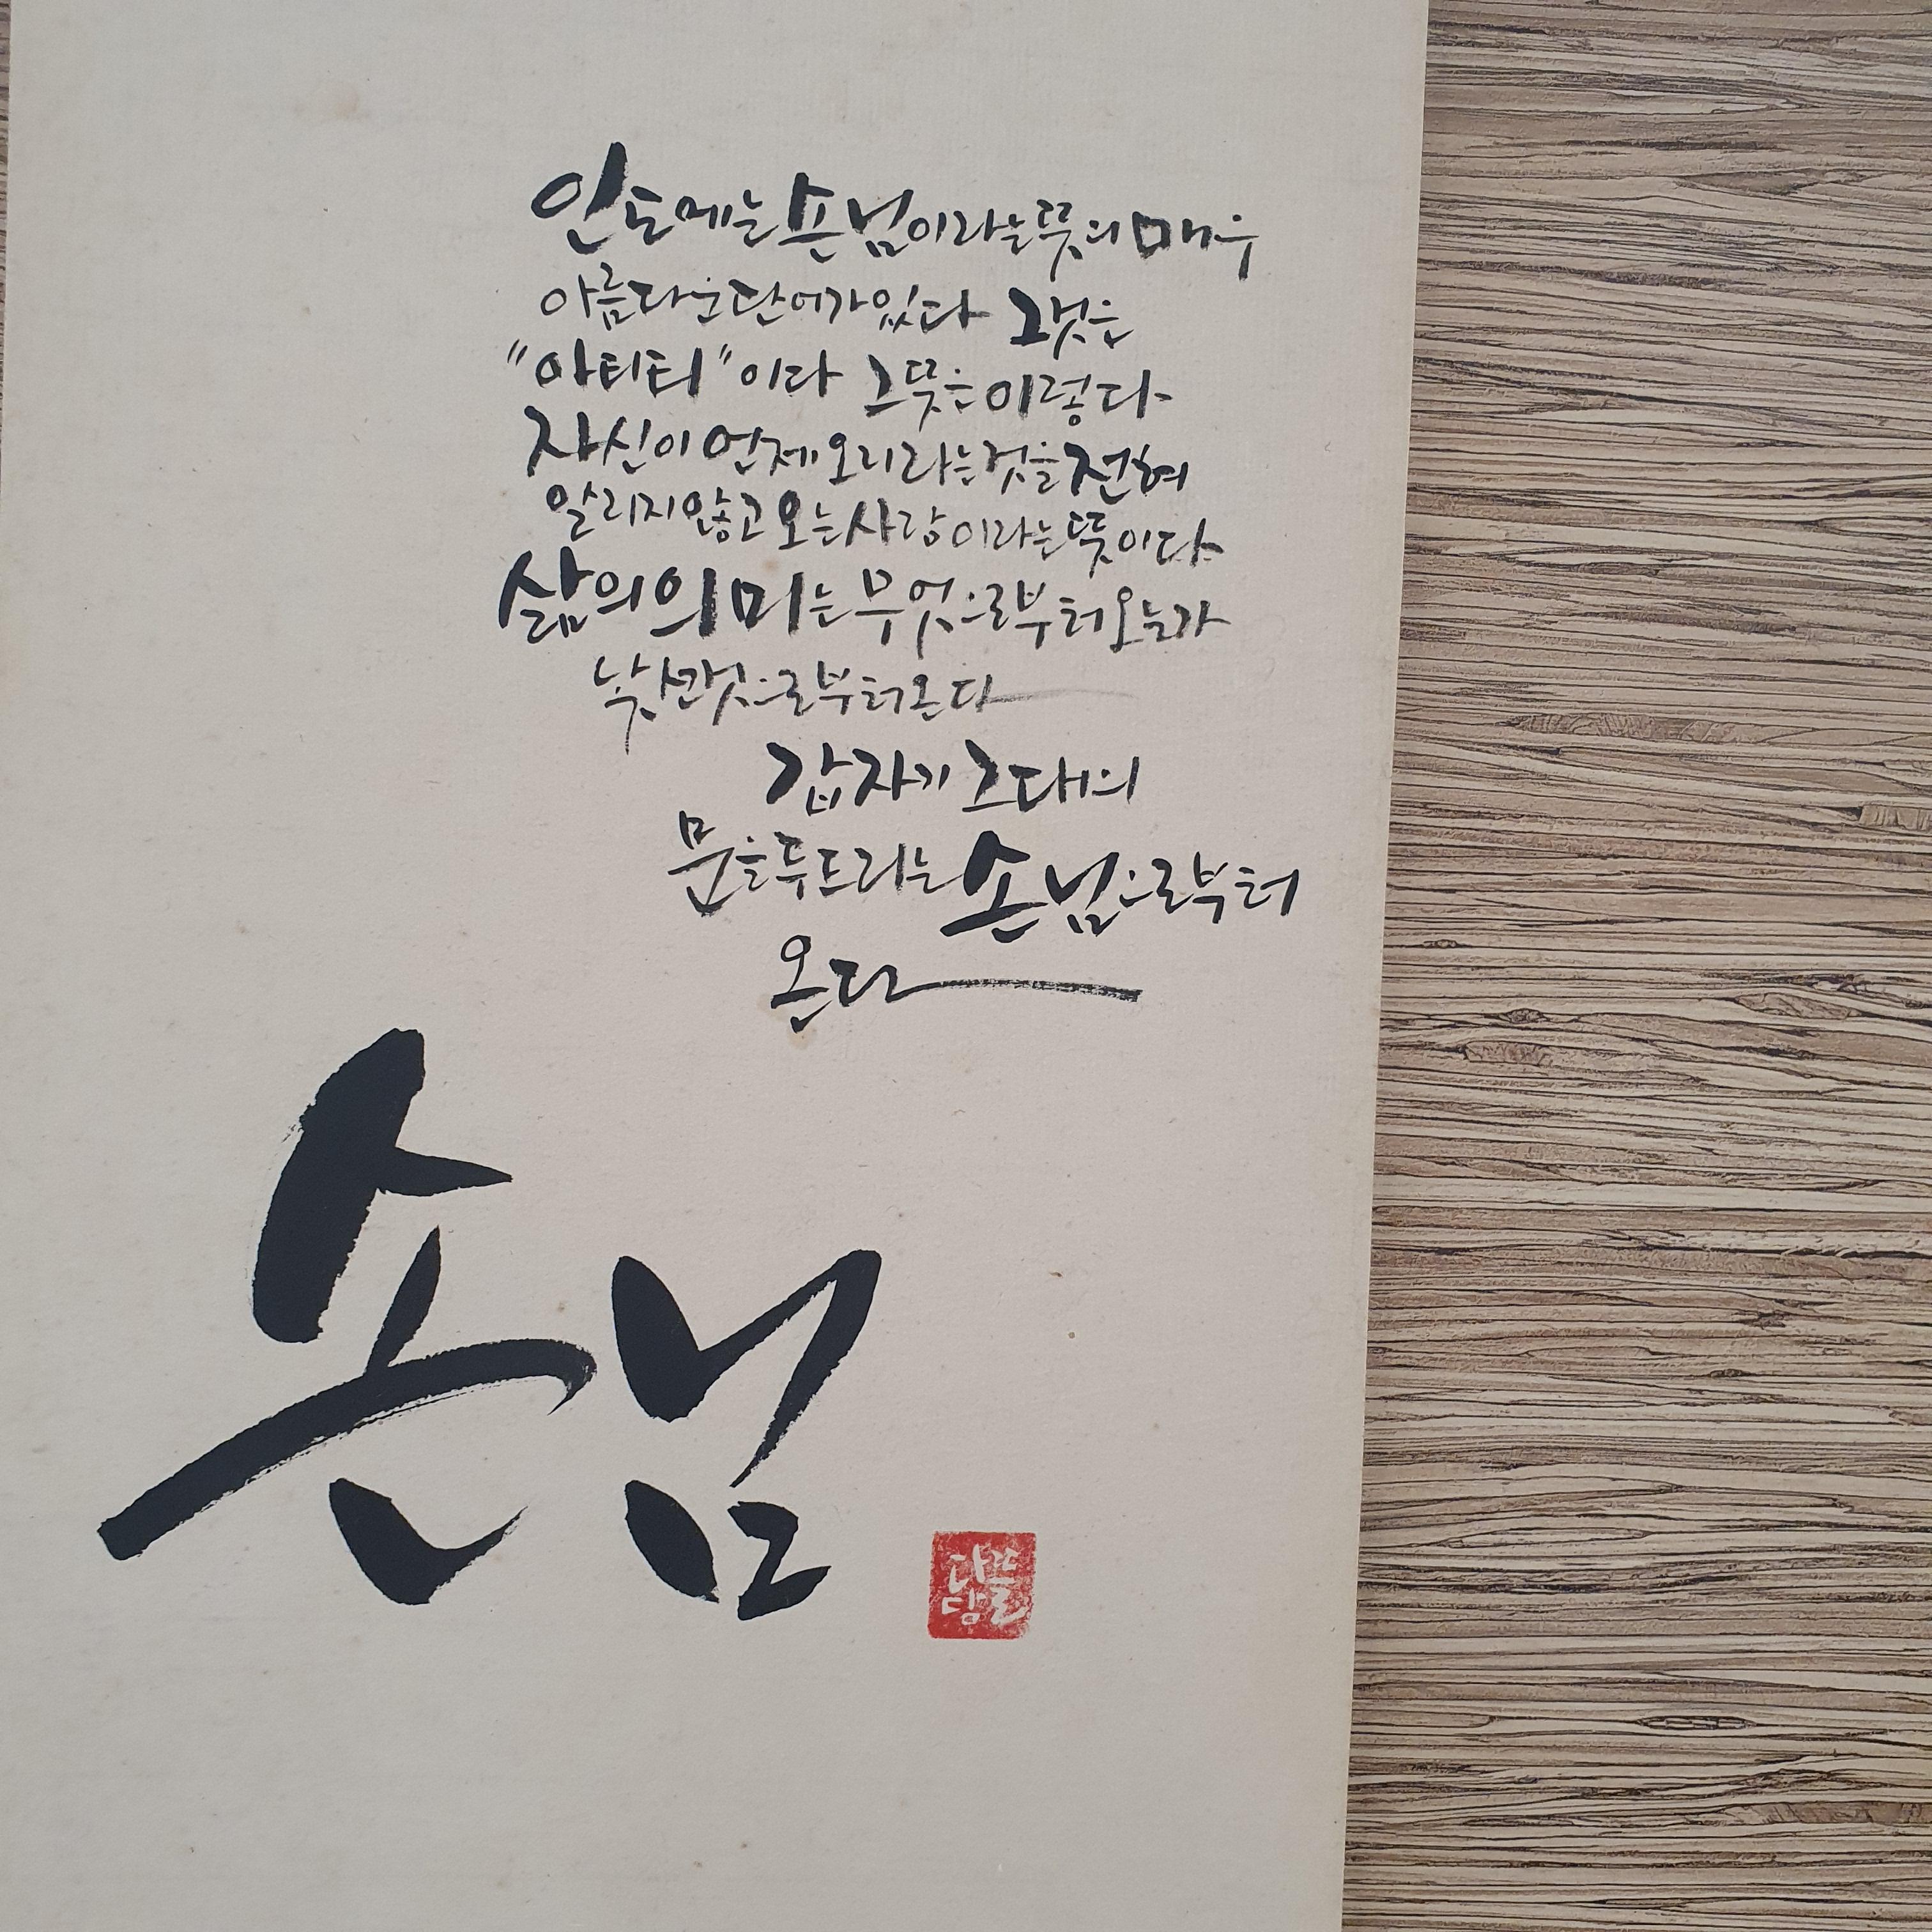 인도에는 손님이라는 뜻의 매우
아름다운 단어가 있다 그것은
"아티티"이다 그 뜻은 이렇다
자신이 언제 오리라는 것을 전혀
알리지 않고 오는 사람이라는 뜻이다
삶의 의미는 무엇으로부터 오는가
낯선 것으로부터 온다
갑자기 그대의
문을 두드리는 손님으로부터
온다
손님